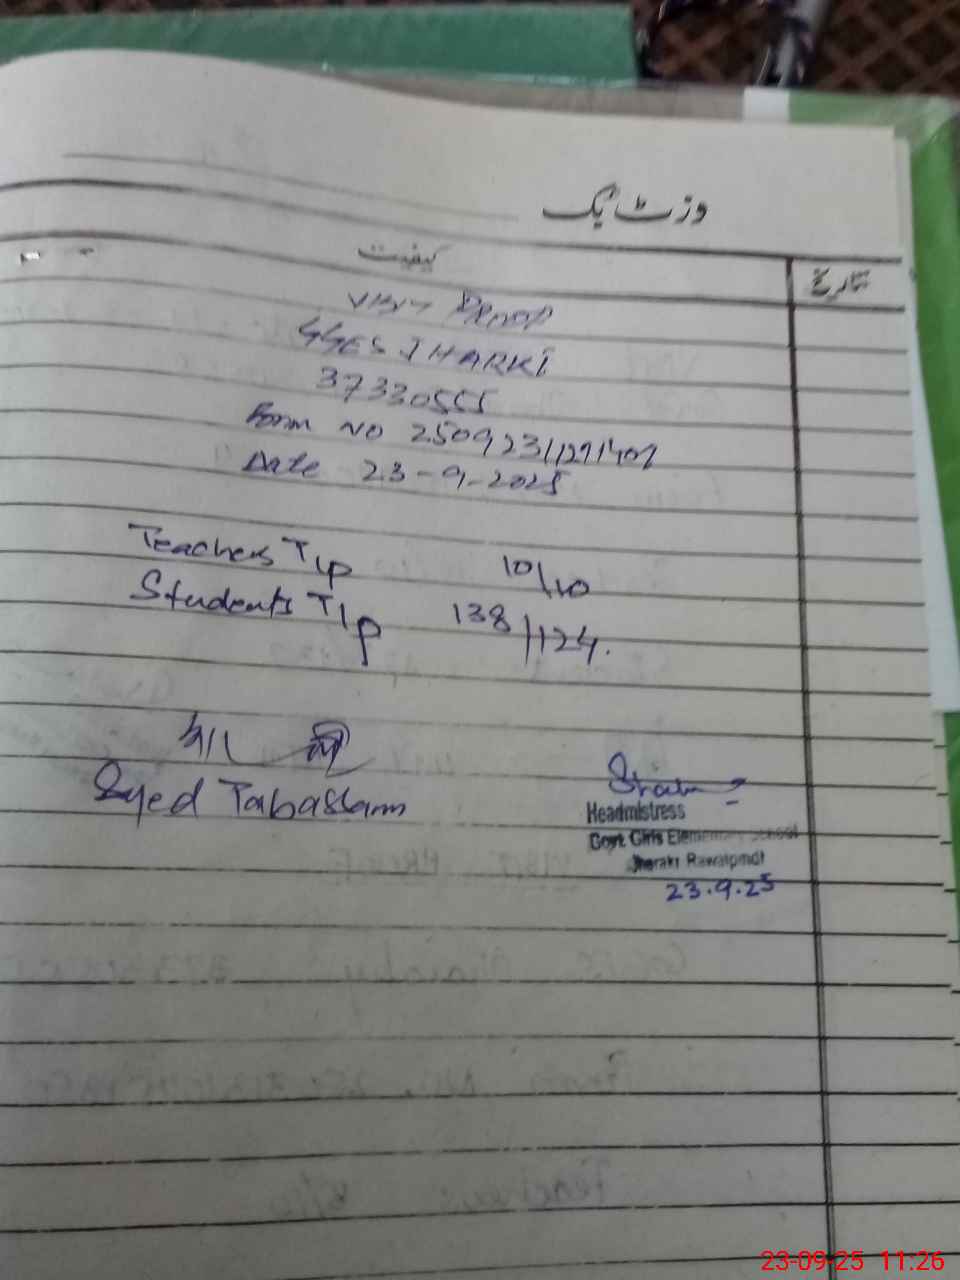 وزٹ بک
کیفیت
تاریخ
Visit PROOF
GGES JHARKI
37330555
Form NO 250923/1291401
Date 23-9-2025
Teachers T/p 10/10
Students T/p 138/124.
Syed Tabassam
Headmistress
Govt. Girls Elementary School
Jharaki Rawalpindi
23.9.25
23-09-25 11:26